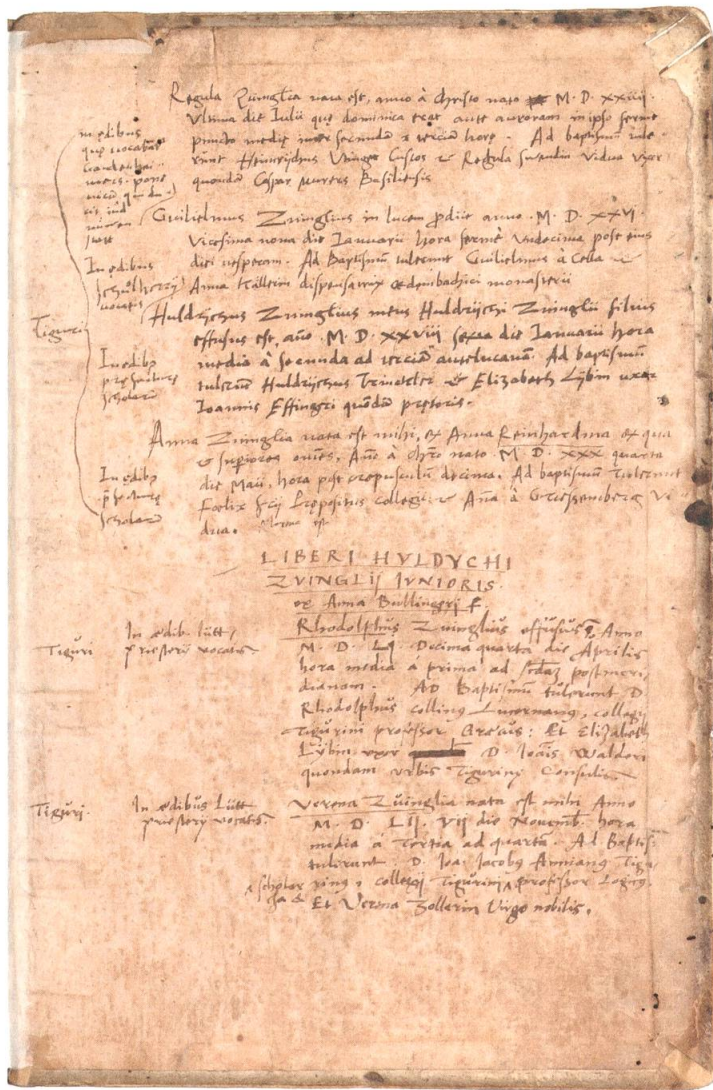 Regula Zuinglia nata est, anno à Christo nato M. D. XXIIII.
Ultima die Iulii que dominica erat ante auroram in ipso ferme
puncto medię inter secundam & terciam horę. Ad baptismum tule-
runt Heinrychus Utinger Custos & Regula vidua uxor
quondam Caspar Murers Basiliensis
in ędibus
quę vocatur
Guilielmus Zuinglius in lucem prodiit anno. M. D. XXVI.
Vicesima nona die Ianuarii hora fermè undecima post eius
diei vesperam. Ad Baptismum tulerunt Guilielmus à Cella &
Anna dispensatrix monasterii
In ędibus
vocatis
Huldrychus Zuinglius meus Huldrychi Zuinglii filius
effusus est, año M. D. XXVIII sexta die Ianuarii hora
media à secunda ad terciam antelucanam. Ad baptismum
tulerunt Huldrychus Trinckler & Elizabeth Lybin uxor
Ioannis Effingeri quondam pretoris.
Tiguri
In edibus
scholarum
Anna Zuinglia nata est mihi, ex Anna Reinhardina ex qua
& superiores omnes, Año à Chro nato M. D. XXX quarta
die Maii, hora post crepusculum decima. Ad baptismum tulerunt
Fœlix Frij Prępositus collegii & Aña à Griessenberg vi-
dua.
In edibus
scholarum
LIBERI HVLDYCHI
ZVINGLIJ IVNIORIS.
ex Anna Bullingeri F.
Rhodolphus Zuinglius effusus ē Anno
M. D. Lj. Decima quarta die Aprilis
hora media à prima ad scdam postmeri-
dianam. AD Baptismum tulerunt D.
Rhodolphus Collinus Lucernanus, collegij
Tigurini professor Græcus: Et Elizabeth
Lybin uxor D. Joãis Waldori
quondam urbis Tigurinę Consulis
Tiguri
In ædib. Lütt
priesterij vocatis
Verena Zuinglia nata est mihi Anno
M. D. Lij. Vij die Novemb. hora
media à Tertia ad quartã. Ad Baptis:
tulerunt. D. Joa: Jacobus Ammianus Tigu-
rinus, collegij Tigurini professor Logicus.
Et Verena Zollerin Virgo nobilis.
Tiguri.
In ædibus Lütt
priesterij vocatis